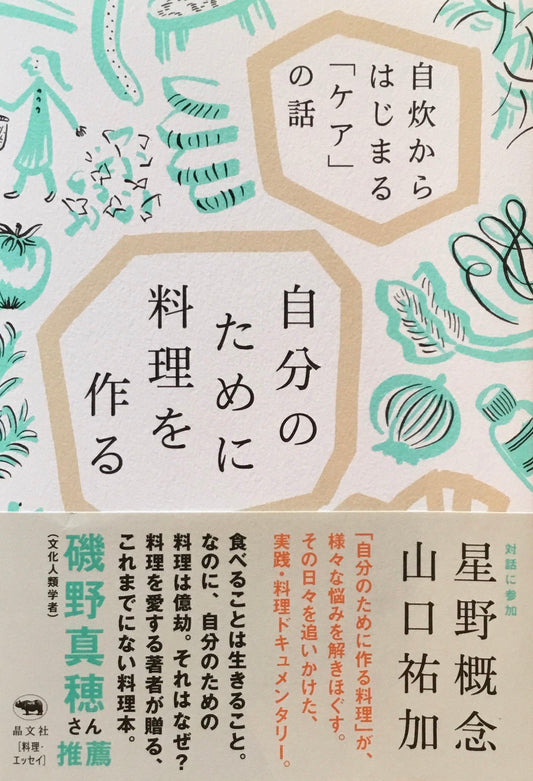 自炊から
はじまる
「ケア」
の話
自分の
ために
料理を
作る
対話に参加
星野概念
山口祐加
「自分のために作る料理」が、
様々な悩みを解きほぐす。
その日々を追いかけた、
実践・料理ドキュメンタリー。
食べることは生きること。
なのに、自分のための
料理は億劫。それはなぜ?
料理を愛する著者が贈る、
これまでにない料理本。
磯野真穂さん推薦
(文化人類学者)
晶文社
[料理・
エッセイ]